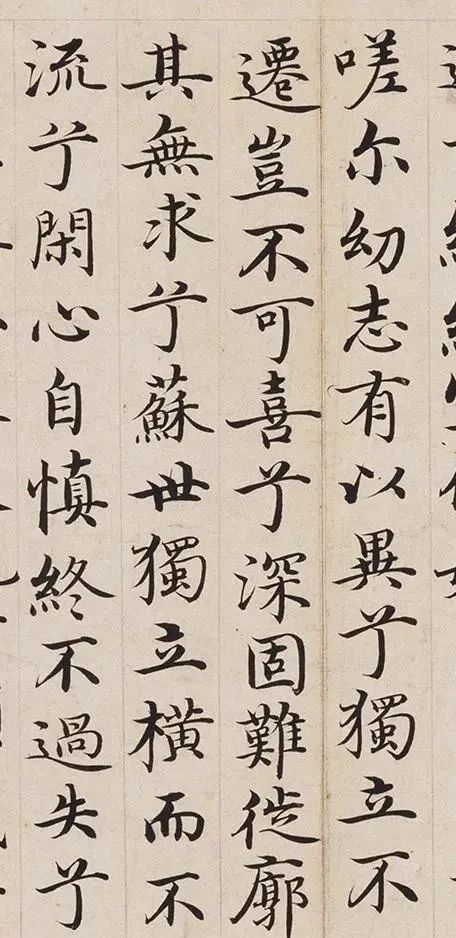 嗟尔幼志有以異兮獨立不
遷豈不可喜兮深固難徙廓
其無求兮蘇世獨立橫而不
流兮閑心自慎終不過失兮